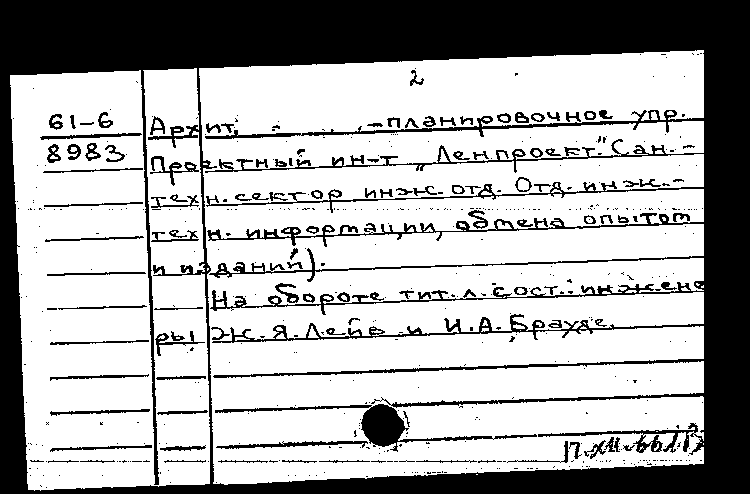 2
61-6 Архит. -планировочное упр.
8983 Проектный ин-т „Ленпроект." Сан.-
техн. сектор инж. отд. Отд. инж.-
техн. информации, обмена опытом
и изданий).
На обороте тит. л. сост.: инжене
ры Ж. Я. Лейв и И. А. Брауде.